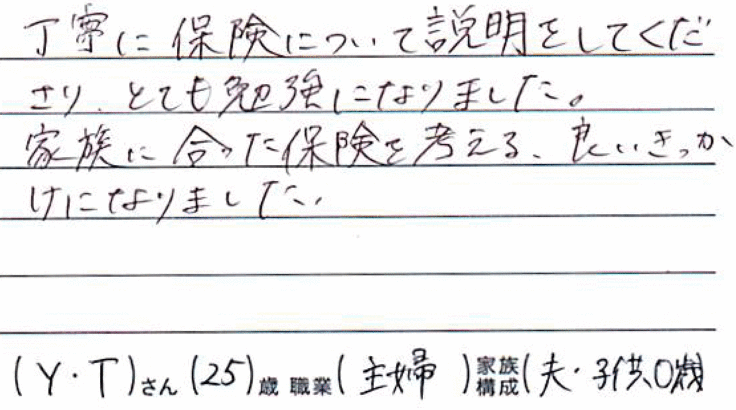 丁寧に保険について説明をしてくだ
さり、とても勉強になりました。
家族に合った保険を考える、良いきっか
けになりました。
(Y・T)さん(25)歳 職業(主婦)家族構成(夫・子供0歳